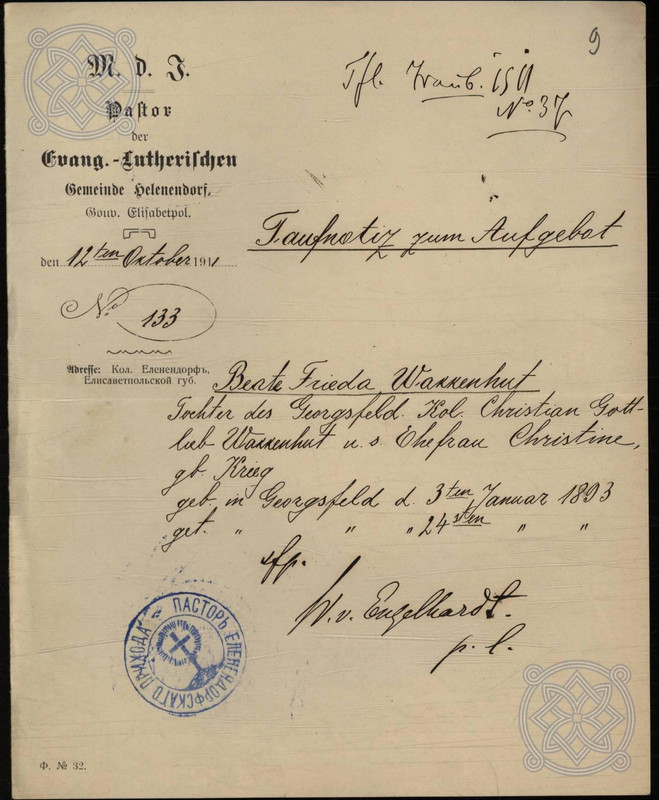 9
M. d. J.
Pastor
der
Evang.-Lutherischen
Gemeinde Helenendorf,
Gouv. Elisabetpol.
den 12ten Oktober 1911
No 133
Adresse: Кол. Еленендорфъ,
Елисаветпольской губ.
Tfl. Traub. 1911
No. 37
Taufnotiz zum Aufgebot
Beate Frieda Wakkenhut
Tochter des Georgsfeld. Kol. Christian Gott-
lieb Wakkenhut u. s. Ehefrau Christine,
gb. Krieg
geb. in Georgsfeld d. 3ten Januar 1893
get. " " " 24sten " "
W. v. Engelhardt.
p. l.
ПАСТОРЪ ЕЛЕНЕНДОРФСКАГО ПРИХОДА
Ф. № 32.